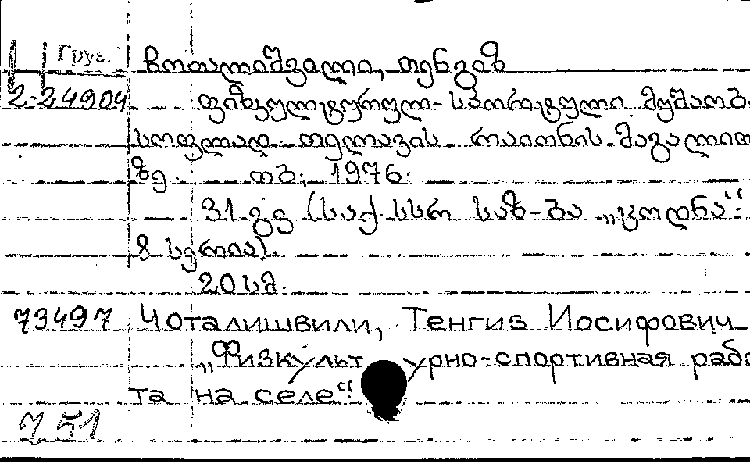 Груз. ჩოთალიშვილი, თენგიზ
2-24904 ფიზკულტურულ-სპორტული მუშაობა
სოფლად თელავის რაიონის მაგალით
ზე. თბ., 1976.
31 გვ (საქ. სსრ საზ-ბა „ცოდნა“.
8 სერია).
20 სმ.
73497 Чоталишвили, Тенгиз Иосифович
„Физкультурно-спортивная рабо
та на селе“.
751